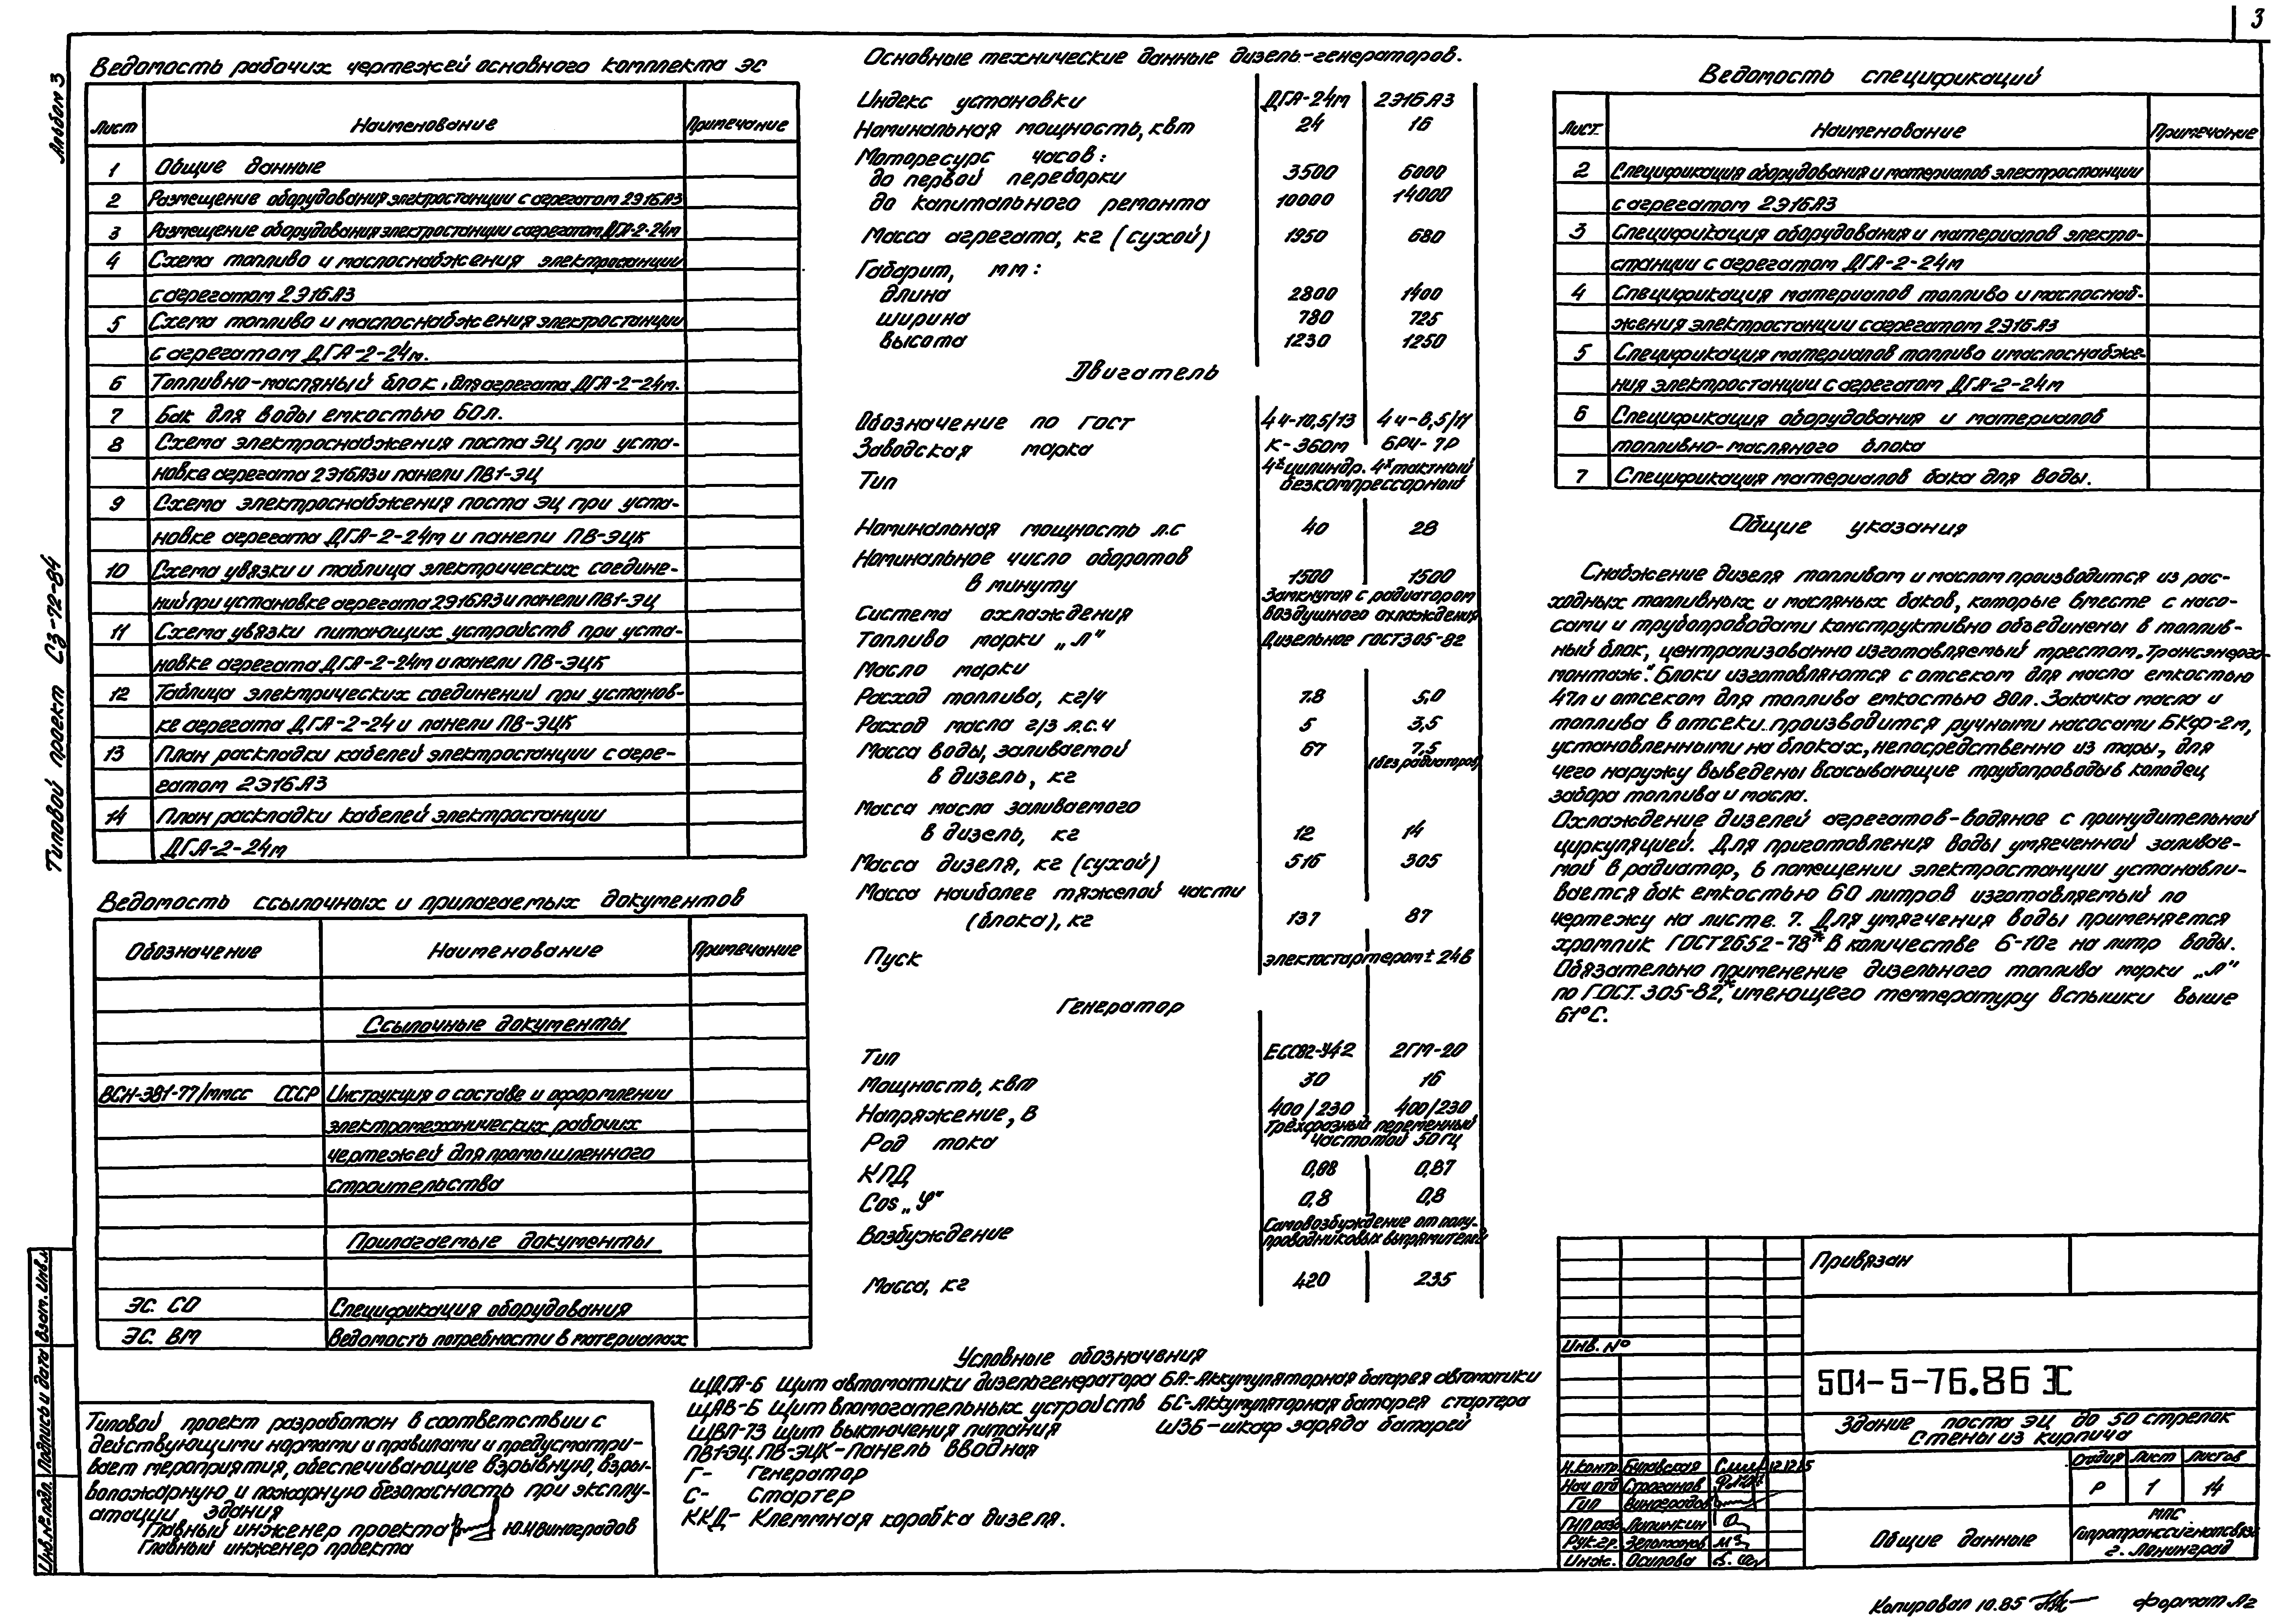 3
Альбом 3
Типовой проект СЗ-72-84
Ведомость рабочих чертежей основного комплекта ЭС
Лист Наименование Примечание
1 Общие данные
2 Размещение оборудования электростанции с агрегатом 2Э16А3
3 Размещение оборудования электростанции с агрегатом ДГА-2-24м
4 Схема топливо и маслоснабжения электростанции
с агрегатом 2Э16А3
5 Схема топливо и маслоснабжения электростанции
с агрегатом ДГА-2-24м.
6 Топливно-масляный блок для агрегата ДГА-2-24м.
7 Бак для воды емкостью 60л.
8 Схема электроснабжения поста ЭЦ при уста-
новке агрегата 2Э16А3 и панели ПВ1-ЭЦ
9 Схема электроснабжения поста ЭЦ при уста-
новке агрегата ДГА-2-24м и панели ПВ-ЭЦК
10 Схема увязки и таблица электрических соедине-
ний при установке агрегата 2Э16А3 и панели ПВ1-ЭЦ
11 Схема увязки питающих устройств при уста-
новке агрегата ДГА-2-24м и панели ПВ-ЭЦК
12 Таблица электрических соединений при установ-
ке агрегата ДГА-2-24 и панели ПВ-ЭЦК
13 План раскладки кабелей электростанции с агре-
гатом 2Э16А3
14 План раскладки кабелей электростанции
ДГА-2-24м
Ведомость ссылочных и прилагаемых документов
Обозначение Наименование Примечание
Ссылочные документы
ВСН-381-77/ммсс СССР Инструкция о составе и оформлении
электромеханических рабочих
чертежей для промышленного
строительства
Прилагаемые документы
ЭС. СО Спецификация оборудования
ЭС. ВМ Ведомость потребности в материалах
Типовой проект разработан в соответствии с
действующими нормами и правилами и предусматри-
вает мероприятия, обеспечивающие взрывную, взры-
вопожарную и пожарную безопасность при эксплу-
атации здания
Главный инженер проекта Ю.И.Виноградов
Главный инженер проекта
Инв.№ подл. Подпись и дата Взам. Инв.№
Основные технические данные дизель-генераторов.
Индекс установки ДГА-24м 2Э16А3
Номинальная мощность, квт 24 16
Моторесурс часов:
до первой переборки 3500 6000
до капитального ремонта 10000 14000
Масса агрегата, кг (сухой) 1950 680
Габарит, мм:
длина 2800 1400
ширина 780 725
высота 1230 1250
Двигатель
Обозначение по ГОСТ 4ч-10,5/13 4ч-8,5/11
Заводская марка К-360м 6РЧ-7Р
4х цилиндр. 4х тактный
Тип безкомпрессорный
Номинальная мощность л.с 40 28
Номинальное число оборотов
в минуту 1500 1500
Замкнутая с радиатором
Система охлаждения воздушного охлаждения
Топливо марки „Л" Дизельное ГОСТ305-82
Масло марки
Расход топлива, кг/ч 7.8 5,0
Расход масла г/э л.с.ч 5 3,5
Масса воды, заливаемой 67 7,5
в дизель, кг (без радиаторов)
Масса масла заливаемого
в дизель, кг 12 14
Масса дизеля, кг (сухой) 516 305
Масса наиболее тяжелой части
(блока), кг 137 87
Пуск электостартером ± 24в
Генератор
Тип ЕСС82-У42 2ГМ-20
Мощность, квт 30 16
Напряжение, В 400/230 400/230
Трёхфазный переменный
Род тока частотой 50 гц
КПД 0,88 0,87
Cos „φ" 0,8 0,8
Самовозбуждение от полу-
Возбуждение проводниковых выпрямителей
Масса, кг 420 235
Условные обозначения
ЩДГА-Б Щит автоматики дизельгенератора БА-Аккумуляторная батарея автоматики
ЩАВ-Б Щит впомогательных устройств БС-Аккумуляторная батарея стартера
ЩВП-73 щит выключения питания ШЗБ-шкаф заряда батарей
ПВ1-ЭЦ. ПВ-ЭЦК-Панель вводная
Г- Генератор
С- Стартер
ККД- Клеммная коробка дизеля.
Ведомость спецификаций
Лист. Наименование Примечание
2 Спецификация оборудования и материалов электростанции
с агрегатом 2Э16А3
3 Спецификация оборудования и материалов электро-
станции с агрегатом ДГА-2-24м
4 Спецификация материалов топливо и маслоснаб-
жения электростанции с агрегатом 2Э16А3
5 Спецификация материалов топливо и маслоснабже-
ния электростанции с агрегатом ДГА-2-24м
6 Спецификация оборудования и материалов
топливно-масляного блока
7 Спецификация материалов бака для воды.
Общие указания
Снабжение дизеля топливом и маслом производится из рас-
ходных топливных и масляных баков, которые вместе с насо-
сами и трубопроводами конструктивно объединены в топлив-
ный блок, централизованно изготавляемый трестом „Трансэнерго-
монтаж". Блоки изготовляются с отсеком для масла емкостью
47л и отсеком для топлива емкостью 80л. Закачка масла и
топлива в отсеки производится ручными насосами БКФ-2м,
установленными на блоках, непосредственно из тары, для
чего наружу выведены всасывающие трубопроводы в колодец
забора топлива и масла.
Охлаждение дизелей агрегатов-водяное с принудительной
циркуляцией. Для приготовления воды умягченной заливае-
мой в радиатор, в помещении электростанции устанавли-
вается бак емкостью 60 литров изготавляемый по
чертежу на листе. 7. Для умягчения воды применяется
хромпик ГОСТ2652-78* в количестве 6-10г на литр воды.
Обязательно применение дизельного топлива марки „Л"
по ГОСТ. 305-82,* имеющего температуру вспышки выше
61°С.
Привязан
Инв. №
501-5-76.86 ЭС
Здание поста ЭЦ до 50 стрелок
Стены из кирпича
Стадия Лист Листов
Р 1 14
Н.контр. Булавская 12.12.85
Нач отд Строганов
ГИП Виноградов
ГИП разд. Липинкин
Рук.гр. Зельманов
Инж. Осипова
Общие данные
МПС
Гипротранссигналсвязь
г. Ленинград
Копировал 10.85 Формат А2